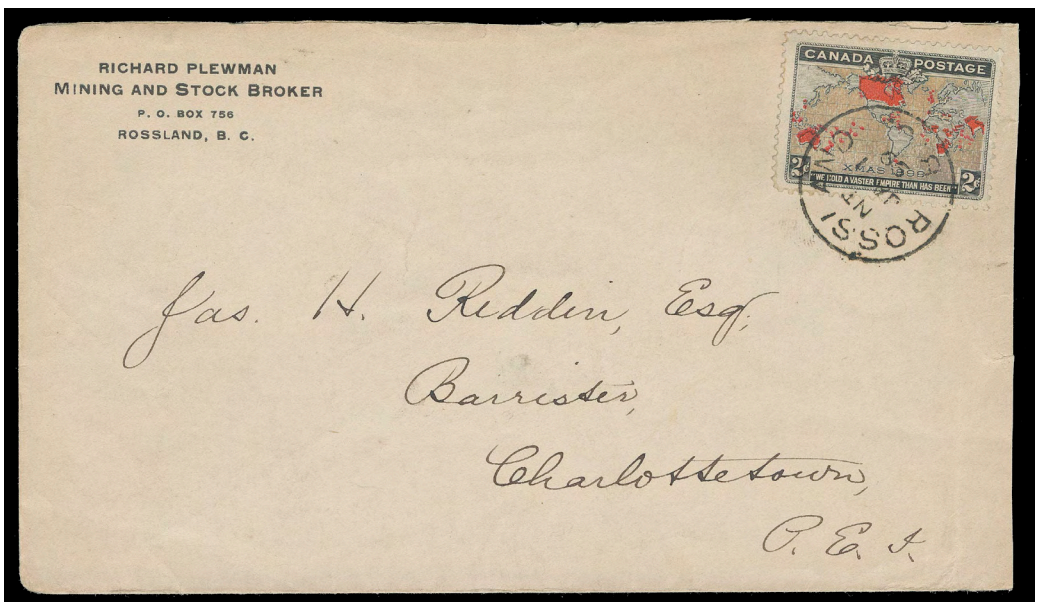 RICHARD PLEWMAN
MINING AND STOCK BROKER
P. O. BOX 756
ROSSLAND, B. C.
CANADA POSTAGE
XMAS 1898
2c 2c
"WE HOLD A VASTER EMPIRE THAN HAS BEEN"
Jas. H. Reddin, Esq.,
Barrister,
Charlottetown,
P. E. I.